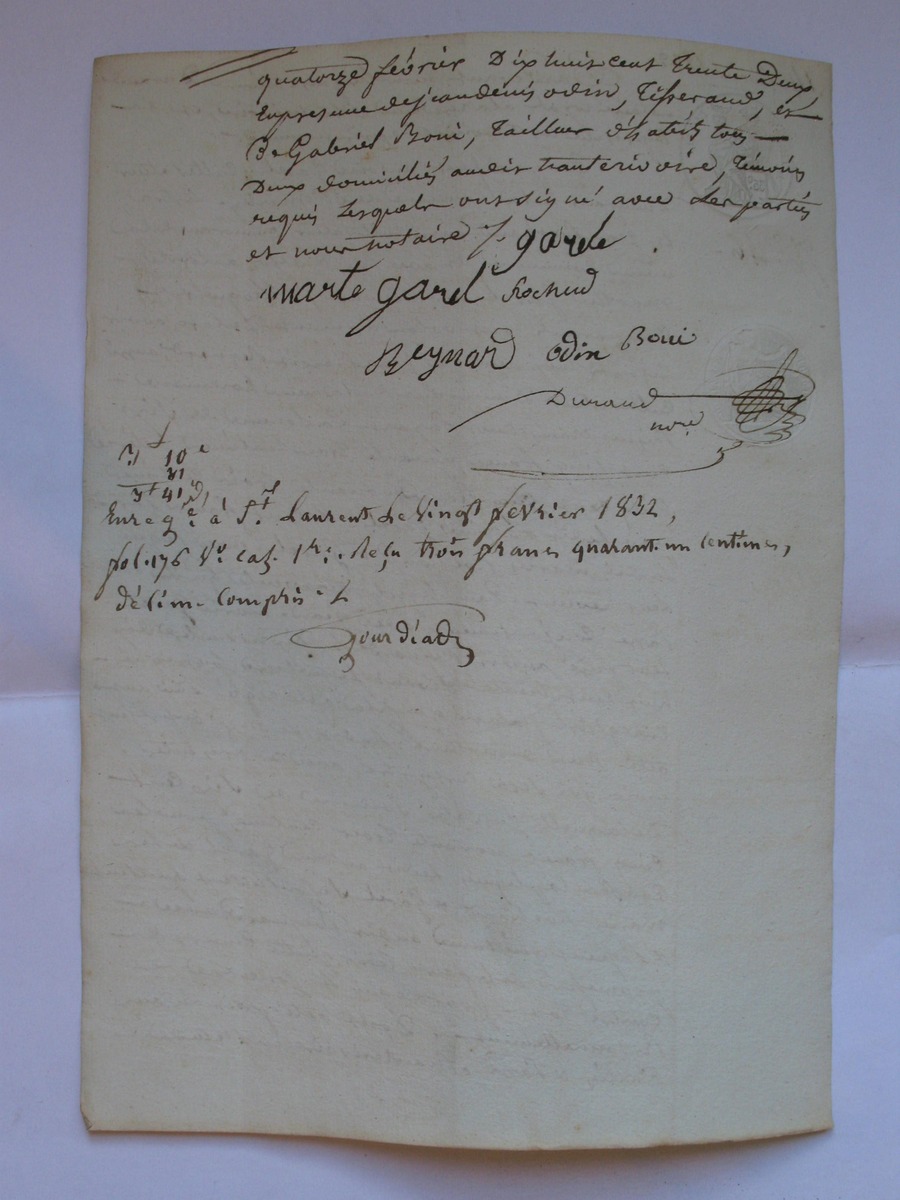 quatorze février Dixhuit cent Trente Deux,
En presence de jean denis odin, Tisserand, et
De Gabriel Boni, Tailleur d'habits tous
Deux domiciliés audit hauterivoire, Témoins
requis Lesquels ont signé avec Les parties
et nous notaire /. garde
marte garel Rochud
Reynard odin Boni
Durand
nore
3f 10c
31
3f 41c
Enregé. à St. Laurent Le Vingt février 1832,
fol. 176 Vo. Cas. 1re. Reçu trois francs quarant-un Centimes,
décime Compris.
gourdiad